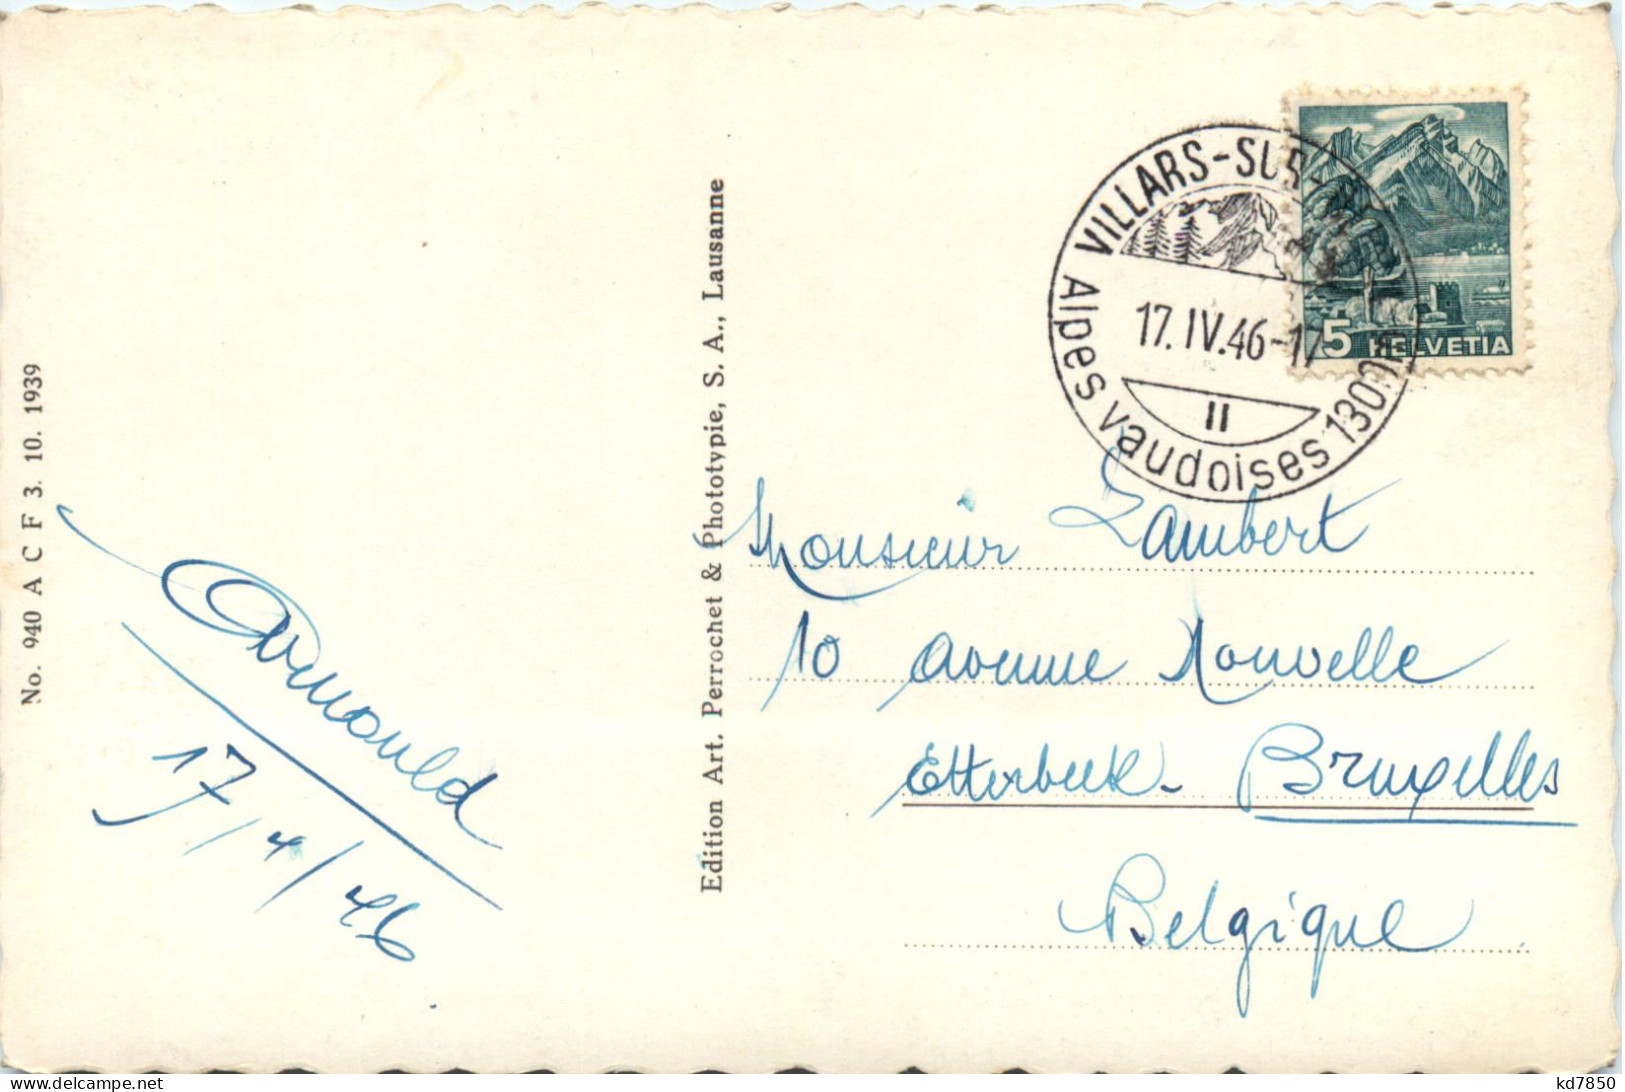 No. 940 A C F 3. 10. 1939
Arnould
17/4/46
Edition Art. Perrochet & Phototypie, S. A., Lausanne
VILLARS-SUR-
17.IV.46-17
II
Alpes vaudoises 1300m
5 HELVETIA
Monsieur Lambert
10 Avenue Nouvelle
Etterbeek - Bruxelles
Belgique
delcampe.net
kd7850